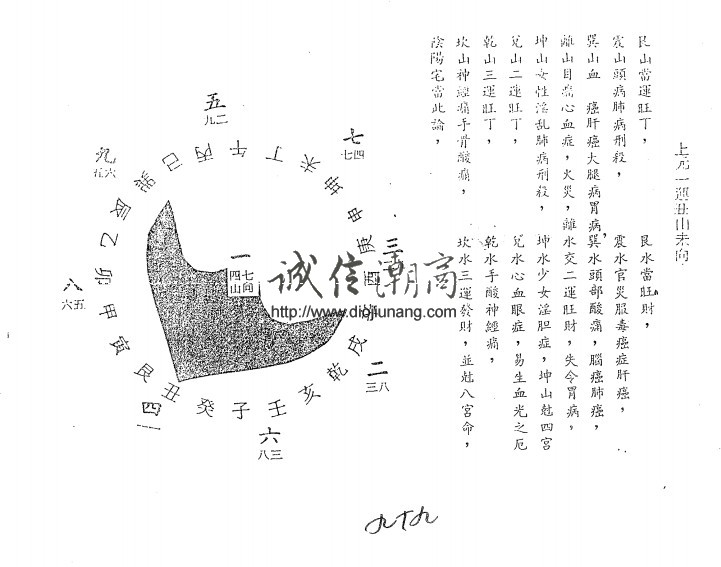 上元一運丑山未向
艮山當運旺丁，　艮水當旺財，
震山頭病肺病刑殺，　震水官災服毒癌症肝癌，
巽山血　癌肝癌大腿病胃病，巽水頭部酸痛，腦癌肺癌，
離山目齒心血症，火災，離水交二運旺財，失令胃病，
坤山女性淫乱肺病刑殺，　坤水少女淫胆症，坤山尅四宮
兌山二運旺丁，　兌水心血眼症，易生血光之厄
乾山三運旺丁，　乾水手酸神經痛，
坎山神經痛手骨酸痛，　坎水三運發財，並尅八宮命，
陰陽宅當此論，
五
二九
七
四七
九
六五
三
一
七向
四山
八
五六
二
八三
四
一
六
三八
巳丙午丁未坤申庚酉辛戌乾亥壬子癸丑艮寅甲卯乙辰巽
誠信潮商
http://www.diqiunang.com
九十九